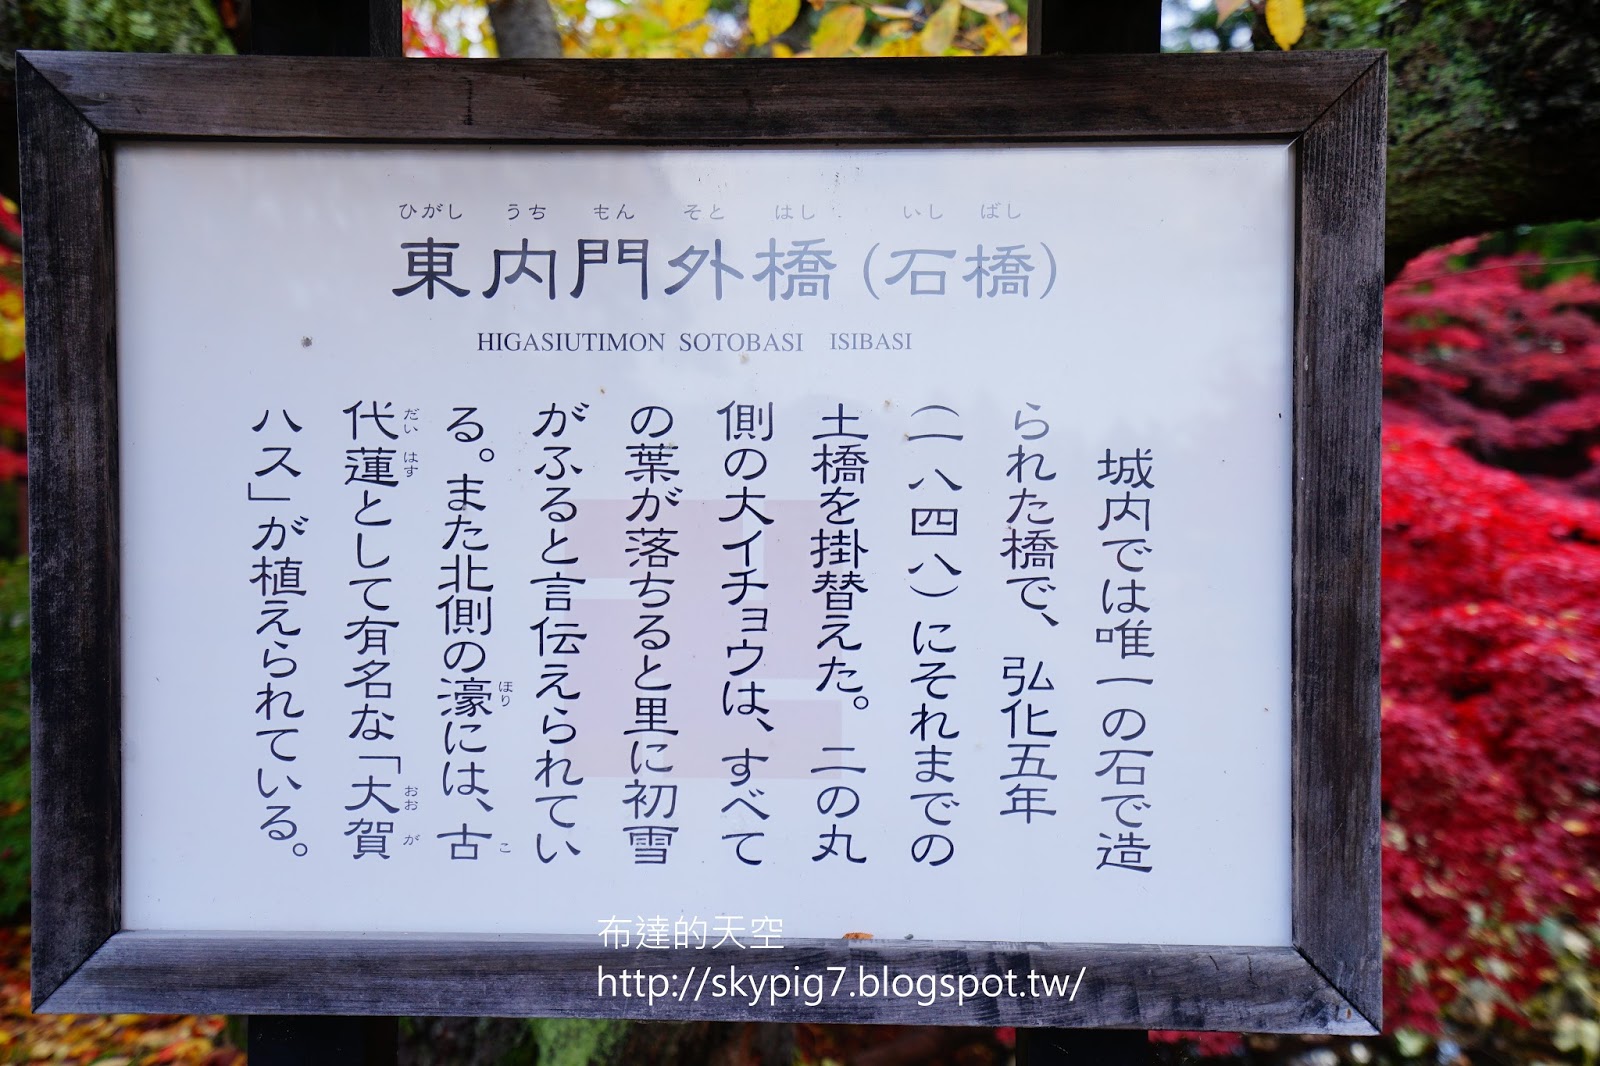 ひがし うち もん そと はし いし ばし
東内門外橋(石橋)
HIGASIUTIMON SOTOBASI ISIBASI
城内では唯一の石で造
られた橋で、弘化五年
(一八四八)にそれまでの
土橋を掛替えた。二の丸
側の大イチョウは、すべて
の葉が落ちると里に初雪
がふると言伝えられてい
る。また北側の濠には、古
ほり こ
代蓮として有名な「大賀
だい はす おお が
ハス」が植えられている。
布達的天空
http://skypig7.blogspot.tw/